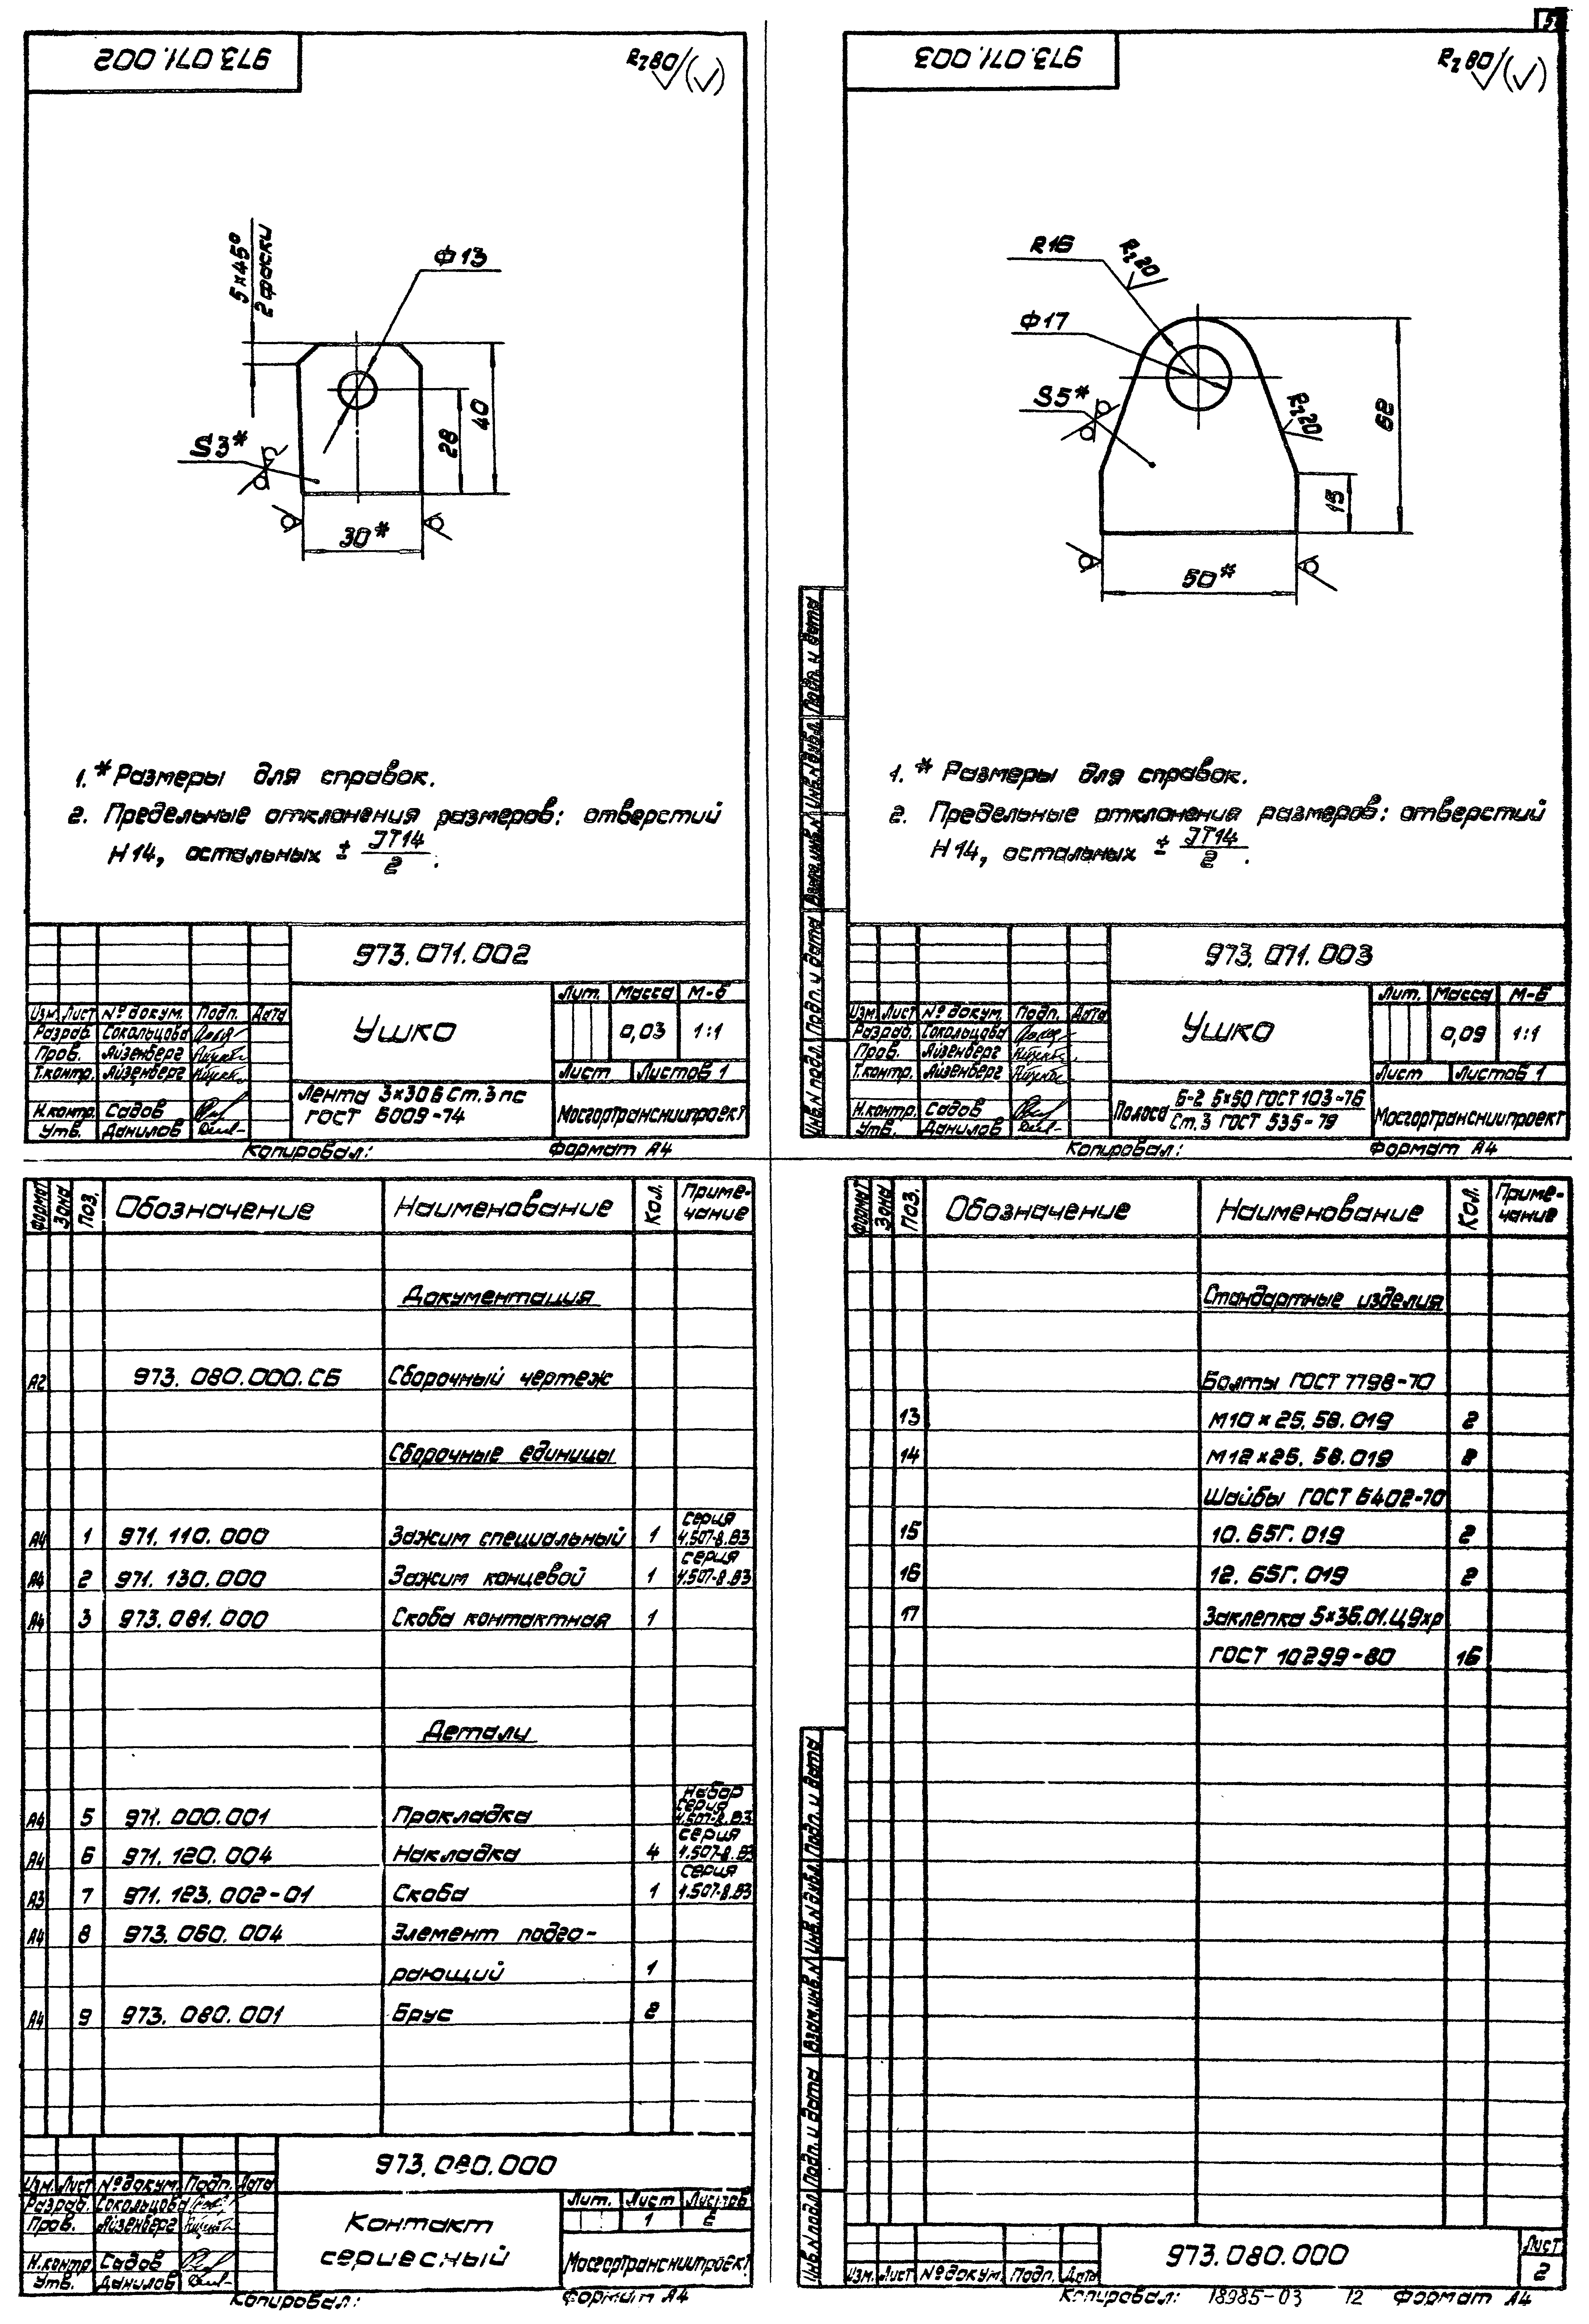 973.071.002
Rz80/(√)
5×45°
2 фаски
Ф13
S3*
28
40
30*
1.* Размеры для справок.
2. Предельные отклонения размеров: отверстий
H14, остальных ± JT14/2.
973.071.002
Изм. Лист № докум. Подп. Дата
Разраб. Сокольцова
Пров. Айзенберг
Т.контр. Айзенберг
Н.контр. Садов
Утв. Данилов
Ушко
Лит. Масса М-б
0,03 1:1
Лист Листов 1
Лента 3×30 Б Ст.3 пс
ГОСТ 6009-74
Мосгортрансниипроект
Копировал: Формат А4
973.071.003
Rz80/(√)
R16
Rz20
Ф17
S5*
Rz20
68
15
50*
1. * Размеры для справок.
2. Предельные отклонения размеров: отверстий
H14, остальных ± JT14/2.
Инв.N подл. Подп. и дата Взам.инв.N Инв.N дубл. Подп. и дата
973.071.003
Изм. Лист № докум. Подп. Дата
Разраб. Сокольцова
Пров. Айзенберг
Т.контр. Айзенберг
Н.контр. Садов
Утв. Данилов
Ушко
Лит. Масса М-б
0,09 1:1
Лист Листов 1
Полоса Б-2 5×50 ГОСТ 103-76
Ст.3 ГОСТ 535-79
Мосгортрансниипроект
Копировал: Формат А4
Формат Зона Поз. Обозначение Наименование Кол. Примечание
Документация
А2 973.080.000.СБ Сборочный чертеж
Сборочные единицы
А4 1 971.110.000 Зажим специальный 1 серия 4.507-8.В3
А4 2 971.130.000 Зажим концевой 1 серия 4.507-8.В3
А4 3 973.081.000 Скоба контактная 1
Детали
А4 5 971.000.001 Прокладка набор серия 4.507-8.В3
А4 6 971.120.004 Накладка 4 серия 4.507-8.В3
А3 7 971.123.002-01 Скоба 1 серия 4.507-8.В3
А4 8 973.060.004 Элемент подго-
рающий 1
А4 9 973.080.001 Брус 2
973.080.000
Изм. Лист № докум. Подп. Дата
Разраб. Сокольцова
Пров. Айзенберг
Н.контр. Садов
Утв. Данилов
Контакт
сериесный
Лит. Лист Листов
1 2
Мосгортрансниипроект
Копировал: Формат А4
Формат Зона Поз. Обозначение Наименование Кол. Примечание
Стандартные изделия
Болты ГОСТ 7798-70
13 М10×25.58.019 2
14 М12×25.58.019
Шайбы ГОСТ 6402-70
15 10.65Г.019 2
16 12.65Г.019 2
17 Заклепка 5×36.01.Ц9хр
ГОСТ 10299-80 16
Инв.N подл. Подп. и дата Взам.инв.N Инв.N дубл. Подп. и дата
973.080.000
Изм. Лист № докум. Подп. Дата
Лист
2
Копировал: 18985-03 12 Формат А4